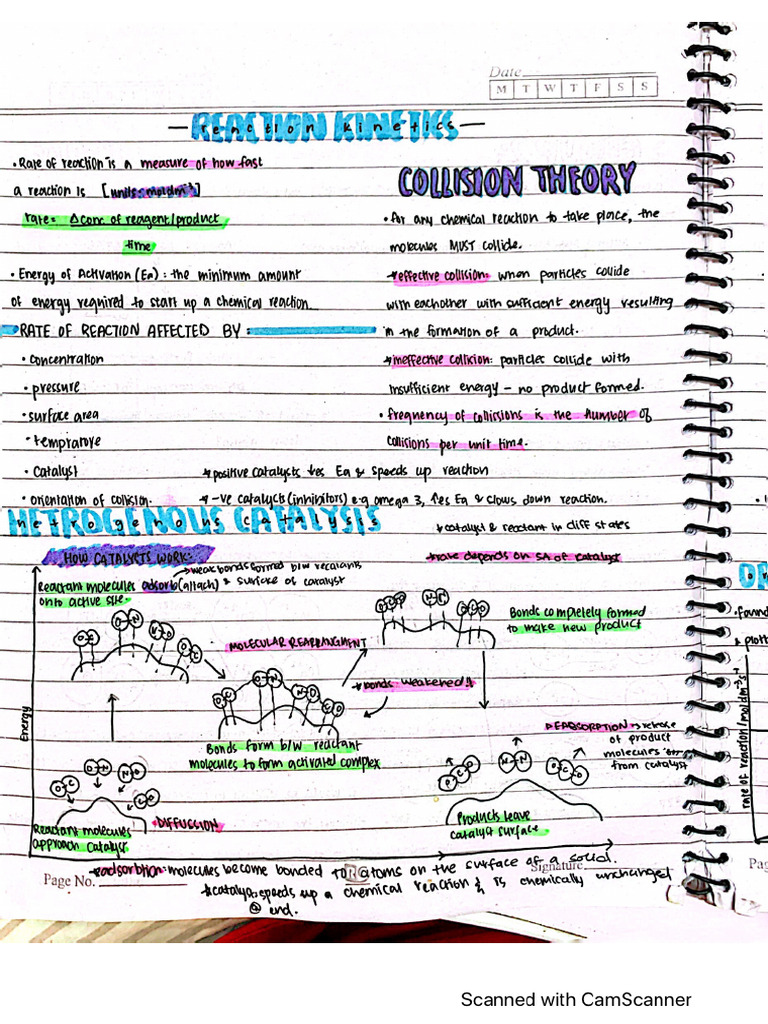 Date
M T W T F S S
— REACTION KINETICS —
reaction kinetics
• Rate of reaction is a measure of how fast
a reaction is [units: moldm⁻³]
rate = Δ conc. of reagent/product
time
• Energy of Activation (Ea): the minimum amount
of energy required to start up a chemical reaction
RATE OF REACTION AFFECTED BY:
• concentration
• pressure
• surface area
• temprature
• Catalyst
• orientation of collision.
COLLISION THEORY
• For any chemical reaction to take place, the
molecules MUST collide.
effective collision: when particles collide
with eachother with sufficient energy resulting
in the formation of a product.
ineffective collision: particles collide with
insufficient energy – no product formed.
• frequency of collisions is the number of
collisions per unit time.
positive catalysts ↓es Ea & speeds up reaction
-ve catalysts (inhibitors) e.g omega 3, ↑es Ea & slows down reaction.
HETROGENOUS CATALYSIS
hetrogenous catalysis
catalyst & reactant in diff states
rate depends on SA of catalyst
HOW CATALYSTS WORK:
weak bonds formed b/w reactants
Reactant molecules adsorb (attach) & surface of catalyst
onto active site.
MOLECULAR REARRANGMENT
Bonds completely formed
to make new product
bonds weakened!!
Bonds form b/w reactant
molecules to form activated complex
DEADSORPTION → release
of product
molecules
from catalyst
Energy
Reactant molecules
approach catalyst
DIFFUSSION
Products leave
catalyst surface
adsorbtion: molecules become bonded to atoms on the surface of a solid.
Page No.
Signature
catalyst speeds up a chemical reaction & is chemically unchanged
@ end.
rate of reaction/moldm⁻³s⁻¹
• Found
& plott
Pag
Scanned with CamScanner